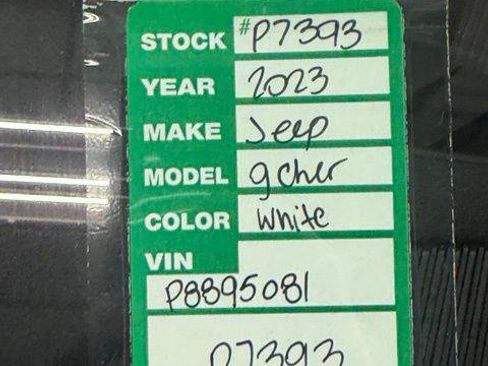 STOCK #P7393
YEAR 2023
MAKE Jeep
MODEL g cher
COLOR White
VIN
P8895081
P7393